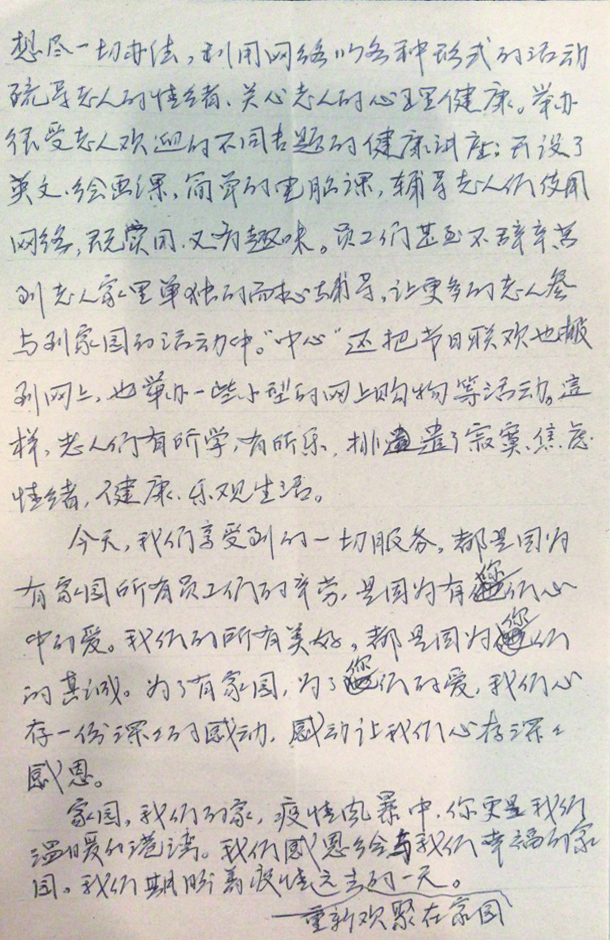 想尽一切办法，利用网络以各种形式的活动
疏导老人的情绪、关心老人的心理健康。举办
很受老人欢迎的不同专题的健康讲座；开设了
英文、绘画课、简单的电脑课，辅导老人们使用
网络，既实用、又有趣味。员工们甚至不辞辛苦
到老人家里单独的耐心辅导，让更多的老人参
与到家园的活动中。“中心”还把节日联欢也搬
到网上，也举办一些小型的网上购物等活动。這
样，老人们有所学，有所乐，排遣了寂寞、焦虑
情绪，健康、乐观生活。
今天，我们享受到的一切服务，都是因为
有家园所有员工们的辛劳，是因为有您们心
中的爱。我们的所有美好，都是因为您们
的真诚。为了有家园，为了您们的爱，我们心
存一份深深的感动，感动让我们心存深深
感恩。
家园，我们的家，疫情风暴中，你更是我们
温暖的港湾。我们感恩给与我们幸福的家
园。我们期盼着疫情远去的一天。
重新欢聚在家园